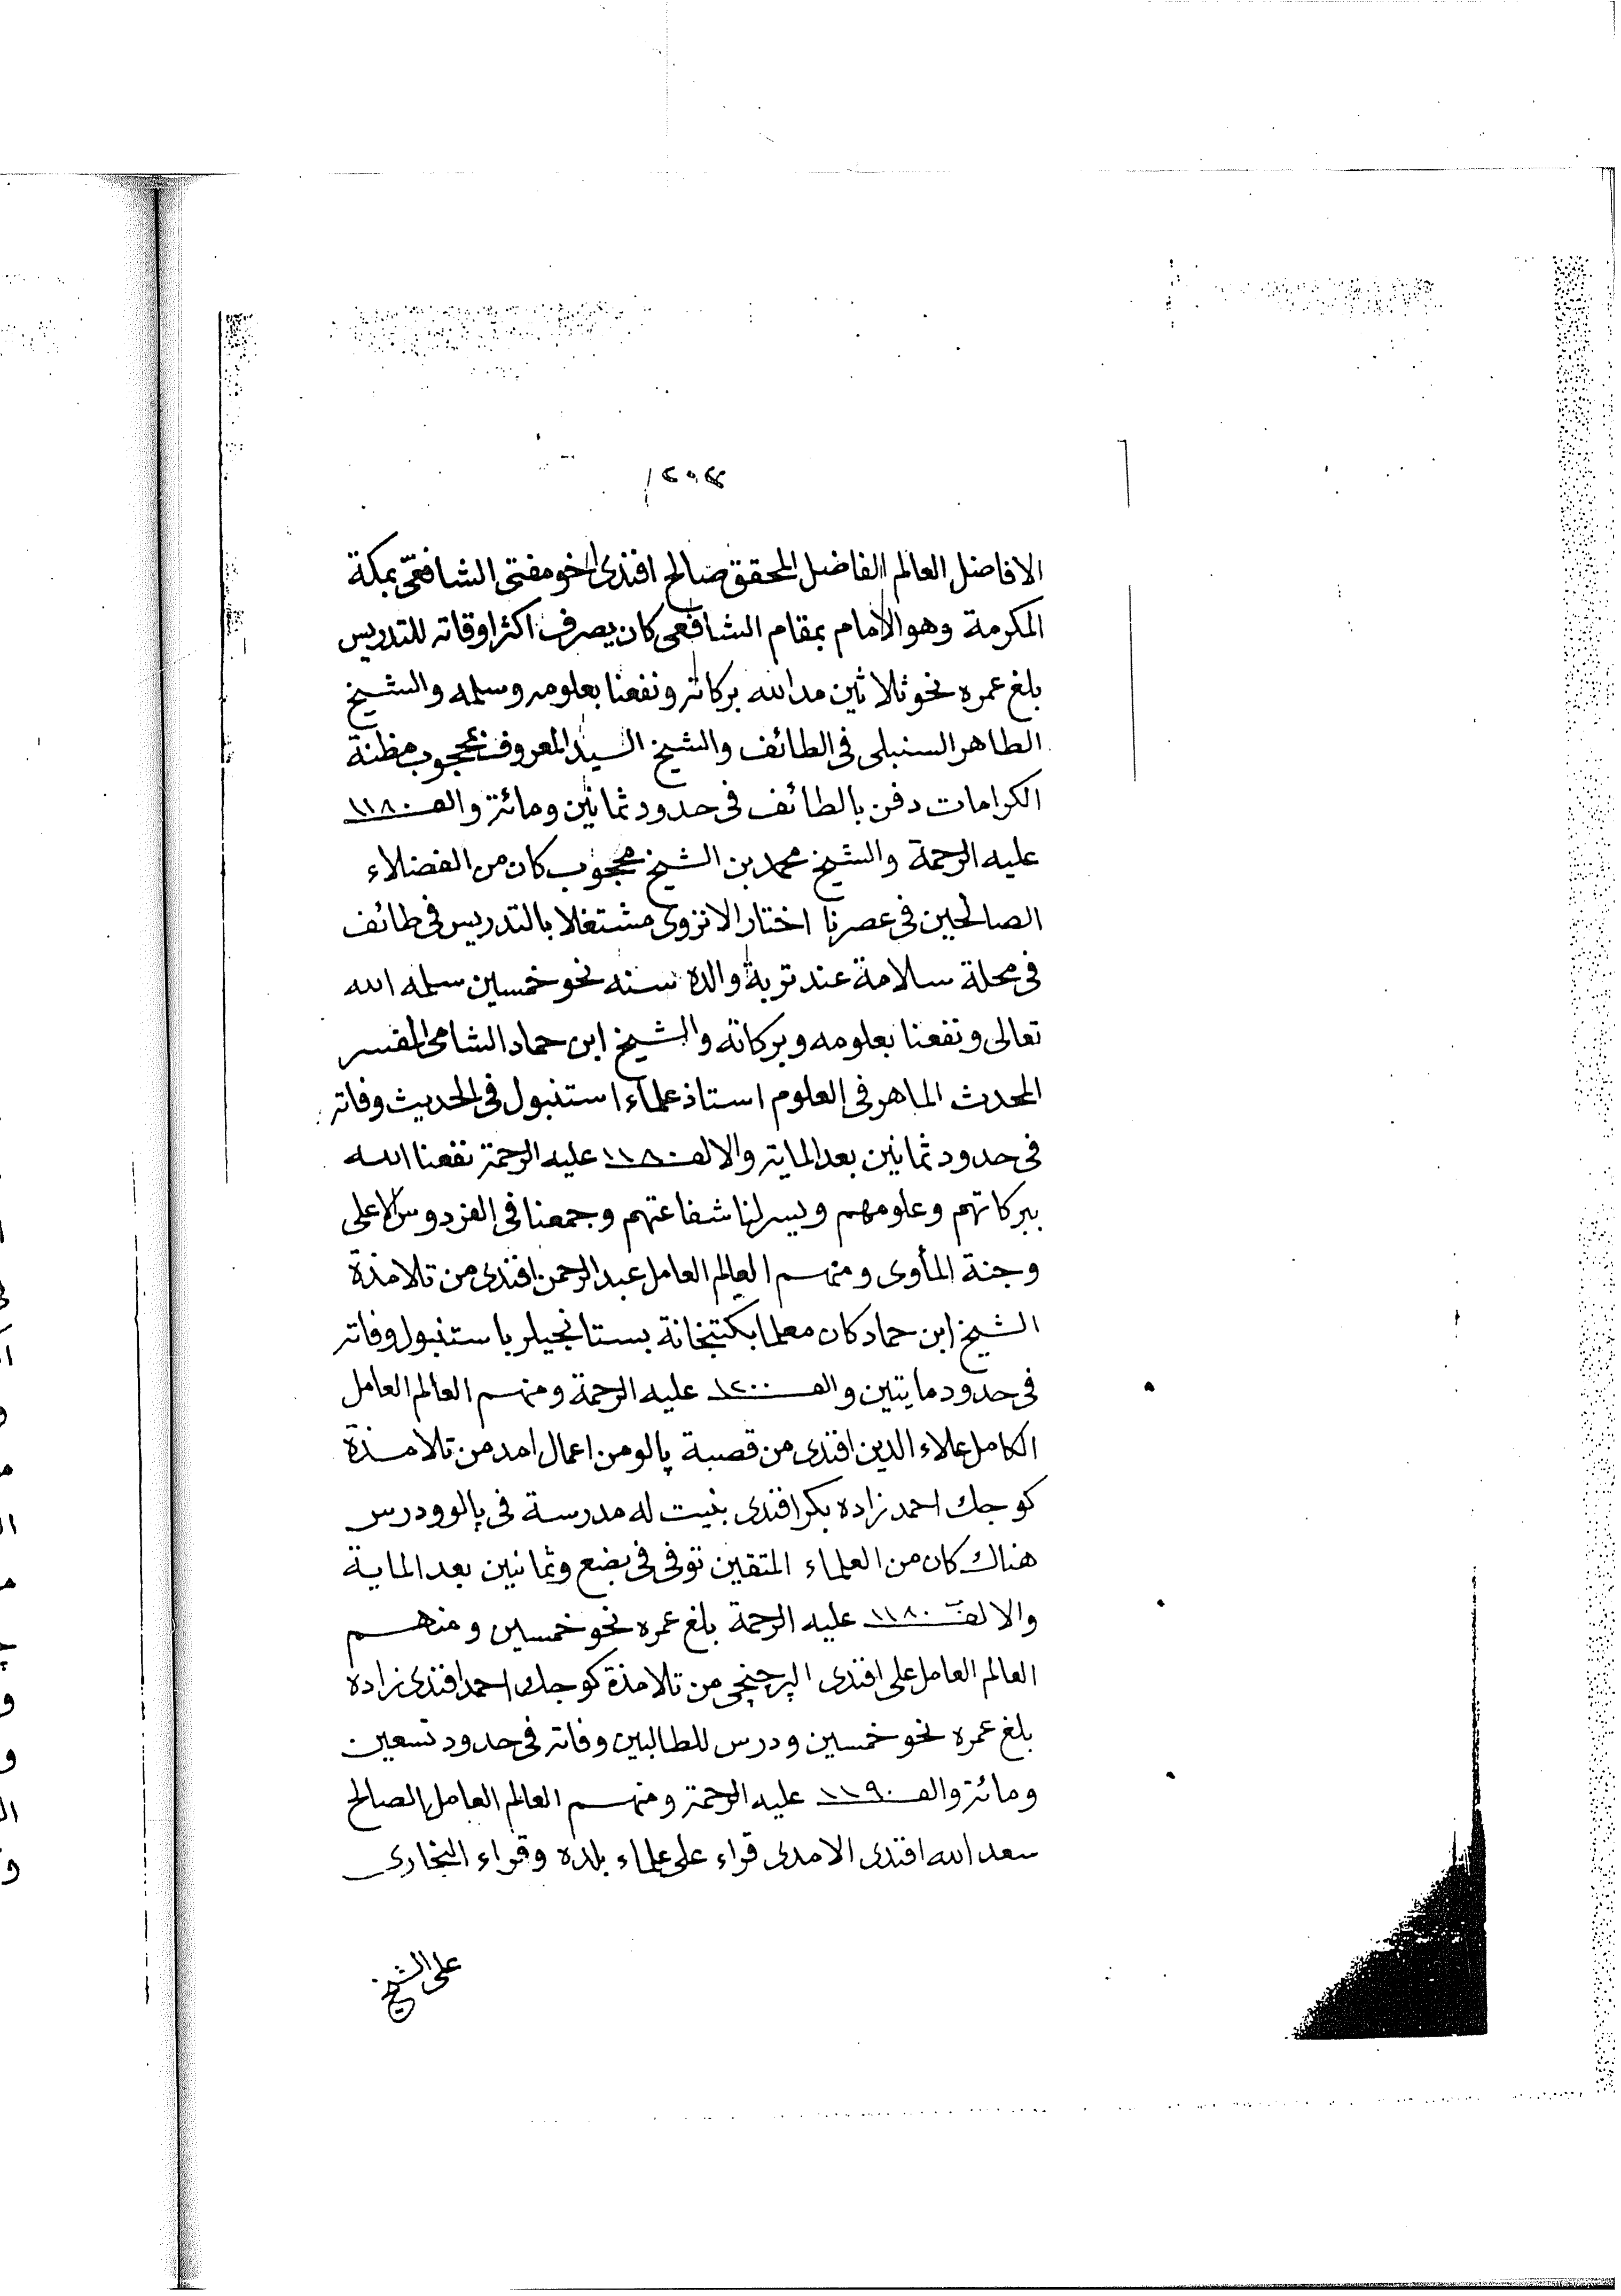 الافاضل العالم الفاضل المحقق صالح افندى اخو مفتى الشافعى بمكة
المكرمة وهو الامام بمقام الشافعى كان يصرف اكثر اوقاته للتدريس
بلغ عمره نحو ثلاثين مد الله بركاته ونفعنا بعلومه وسلمه والشيخ
الطاهر السنبلى فى الطائف والشيخ السيد المعروف بمحجوب مظنة
الكرامات دفن بالطائف فى حدود ثمانين ومائة والف ١١٨٠
عليه الرحمة والشيخ محمد بن الشيخ محجوب كان من الفضلاء
الصالحين فى عصرنا اختار الانزوى مشتغلا بالتدريس فى طائف
فى محلة سلامة عند تربة والده سنه نحو خمسين سلمه الله
تعالى ونفعنا بعلومه وبركاته والشيخ ابن حماد الشامى المفسر
المحدث الماهر فى العلوم استاذ علماء استنبول فى الحديث وفاته
فى حدود ثمانين بعد الماية والالف ١١٨٠ عليه الرحمة نفعنا الله
ببركاتهم وعلومهم ويسر لنا شفاعتهم وجمعنا فى الفردوس الاعلى
وجنة المأوى ومنهم العالم العامل عبد الرحمن افندى من تلامذة
الشيخ ابن حماد كان معلما بكتبخانة بستانجيلر باستنبول وفاته
فى حدود مايتين والف ١٢٠٠ عليه الرحمة ومنهم العالم العامل
الكامل علاء الدين افندى من قصبة پالو من اعمال امد من تلامذة
كوجك احمد زاده بكر افندى بنيت له مدرسة فى پالو ودرس
هناك كان من العلماء المتقين توفى فى بضع وثمانين بعد الماية
والالف ١١٨٠ عليه الرحمة بلغ عمره نحو خمسين ومنهم
العالم العامل على افندى من تلامذة كوجك احمد افندى زاده
بلغ عمره نحو خمسين ودرس للطالبين وفاته فى حدود تسعين
ومائة والف ١١٩٠ عليه الرحمة ومنهم العالم العامل الصالح
سعد الله افندى الامدى قراء على علماء بلده وقراء البخارى
على الشيخ